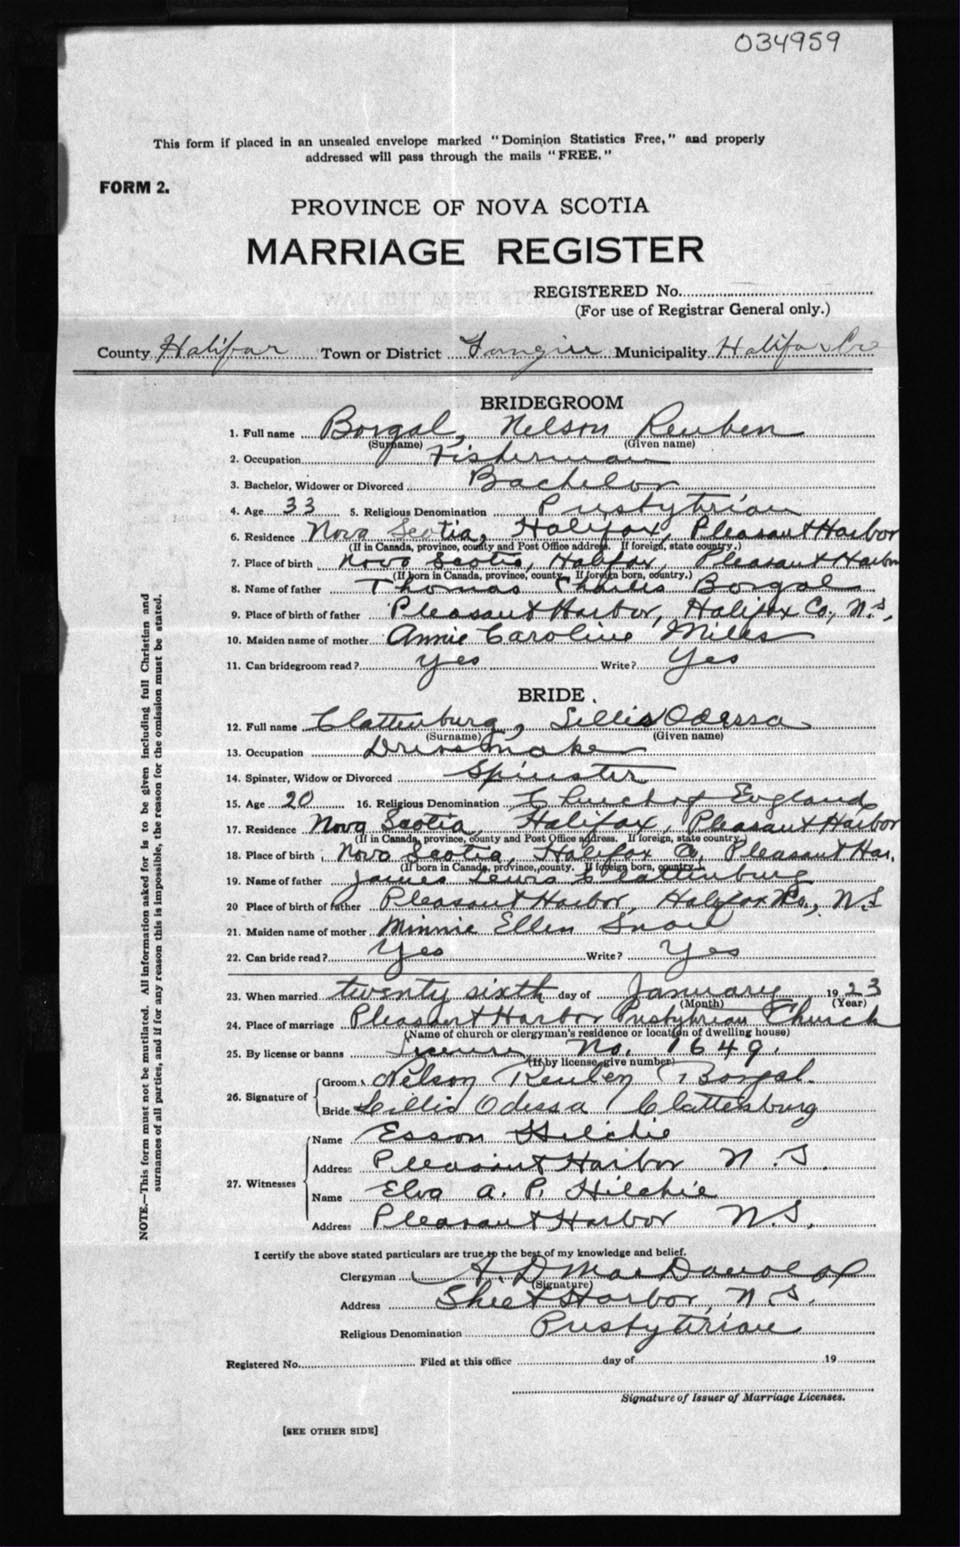 034959
This form if placed in an unsealed envelope marked "Dominion Statistics Free," and properly
addressed will pass through the mails "FREE."
FORM 2.
PROVINCE OF NOVA SCOTIA
MARRIAGE REGISTER
REGISTERED No.
(For use of Registrar General only.)
County Halifax Town or District Tangier Municipality Halifax Co
BRIDEGROOM
1. Full name Borgal, Nelson Reuben
(Surname) (Given name)
2. Occupation Fisherman
3. Bachelor, Widower or Divorced Bachelor
4. Age 33 5. Religious Denomination Presbytrian
6. Residence Nova Scotia, Halifax, Pleasant Harbor
(If in Canada, province, county and Post Office address. If foreign, state country.)
7. Place of birth Nova Scotia, Halifax, Pleasant Harbor
(If born in Canada, province, county. If foreign born, country.)
8. Name of father Thomas Charles Borgal
9. Place of birth of father Pleasant Harbor, Halifax Co, N.S.
10. Maiden name of mother Annie Caroline
11. Can bridegroom read? Yes Write? Yes
BRIDE.
12. Full name Clattenburg, Lillis Odessa
(Surname) (Given name)
13. Occupation
14. Spinster, Widow or Divorced Spinster
15. Age 20 16. Religious Denomination Church of England
17. Residence Nova Scotia, Halifax, Pleasant Harbor
(If in Canada, province, county and Post Office address. If foreign, state country.)
18. Place of birth Nova Scotia, Halifax Co, Pleasant Har.
(If born in Canada, province, county. If foreign born, country.)
19. Name of father James Lewis Clattenburg
20 Place of birth of father Pleasant Harbor, Halifax Co., N.S
21. Maiden name of mother Minnie Ellen Snow
22. Can bride read? Yes Write? Yes
23. When married twenty sixth day of January 1923
(Month) (Year)
24. Place of marriage Pleasant Harbor Presbytrian Church
(Name of church or clergyman's residence or location of dwelling house)
25. By license or banns License No. 1649.
(If by license, give number)
26. Signature of Groom Nelson Reuben Borgal.
Bride Lillis Odessa Clattenburg
27. Witnesses
Name Esson Hilchie
Address Pleasant Harbor N.S.
Name Elva A. P. Hilchie
Address Pleasant Harbor N.S.
I certify the above stated particulars are true to the best of my knowledge and belief.
Clergyman A. D. MacDonald
(Signature)
Address Sheet Harbor, N.S.
Religious Denomination Presbytrian
Registered No. Filed at this office day of 19
Signature of Issuer of Marriage Licenses.
[SEE OTHER SIDE]
NOTE.—This form must not be mutilated. All information asked for is to be given including full Christian and
surnames of all parties, and if for any reason this is impossible, the reason for the omission must be stated.